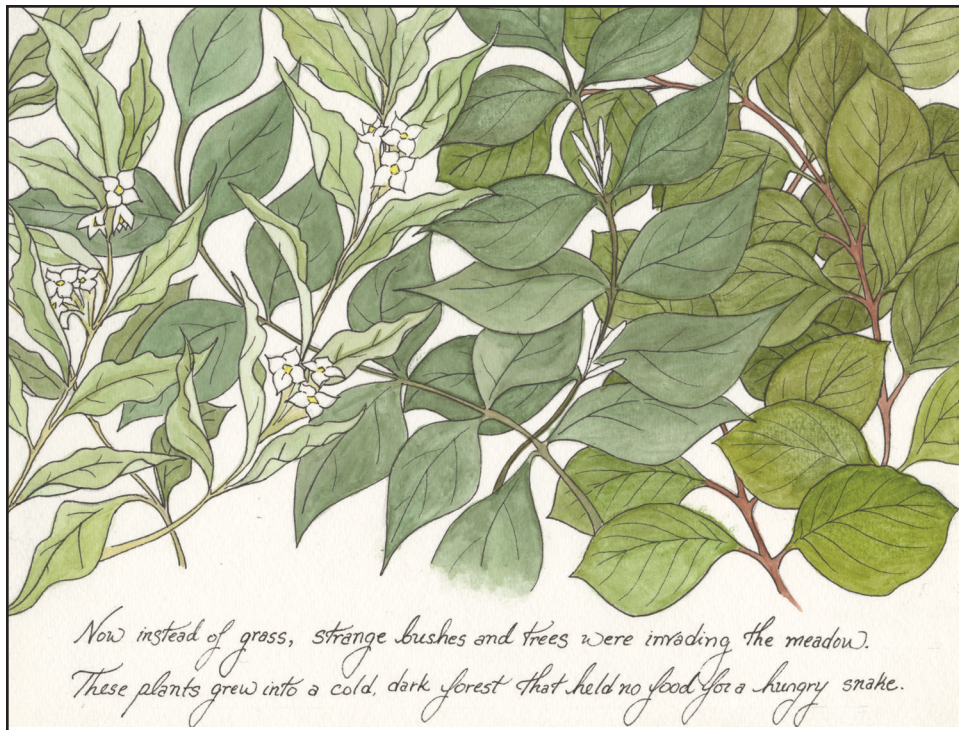 Now instead of grass, strange bushes and trees were invading the meadow.
These plants grew into a cold, dark forest that held no food for a hungry snake.